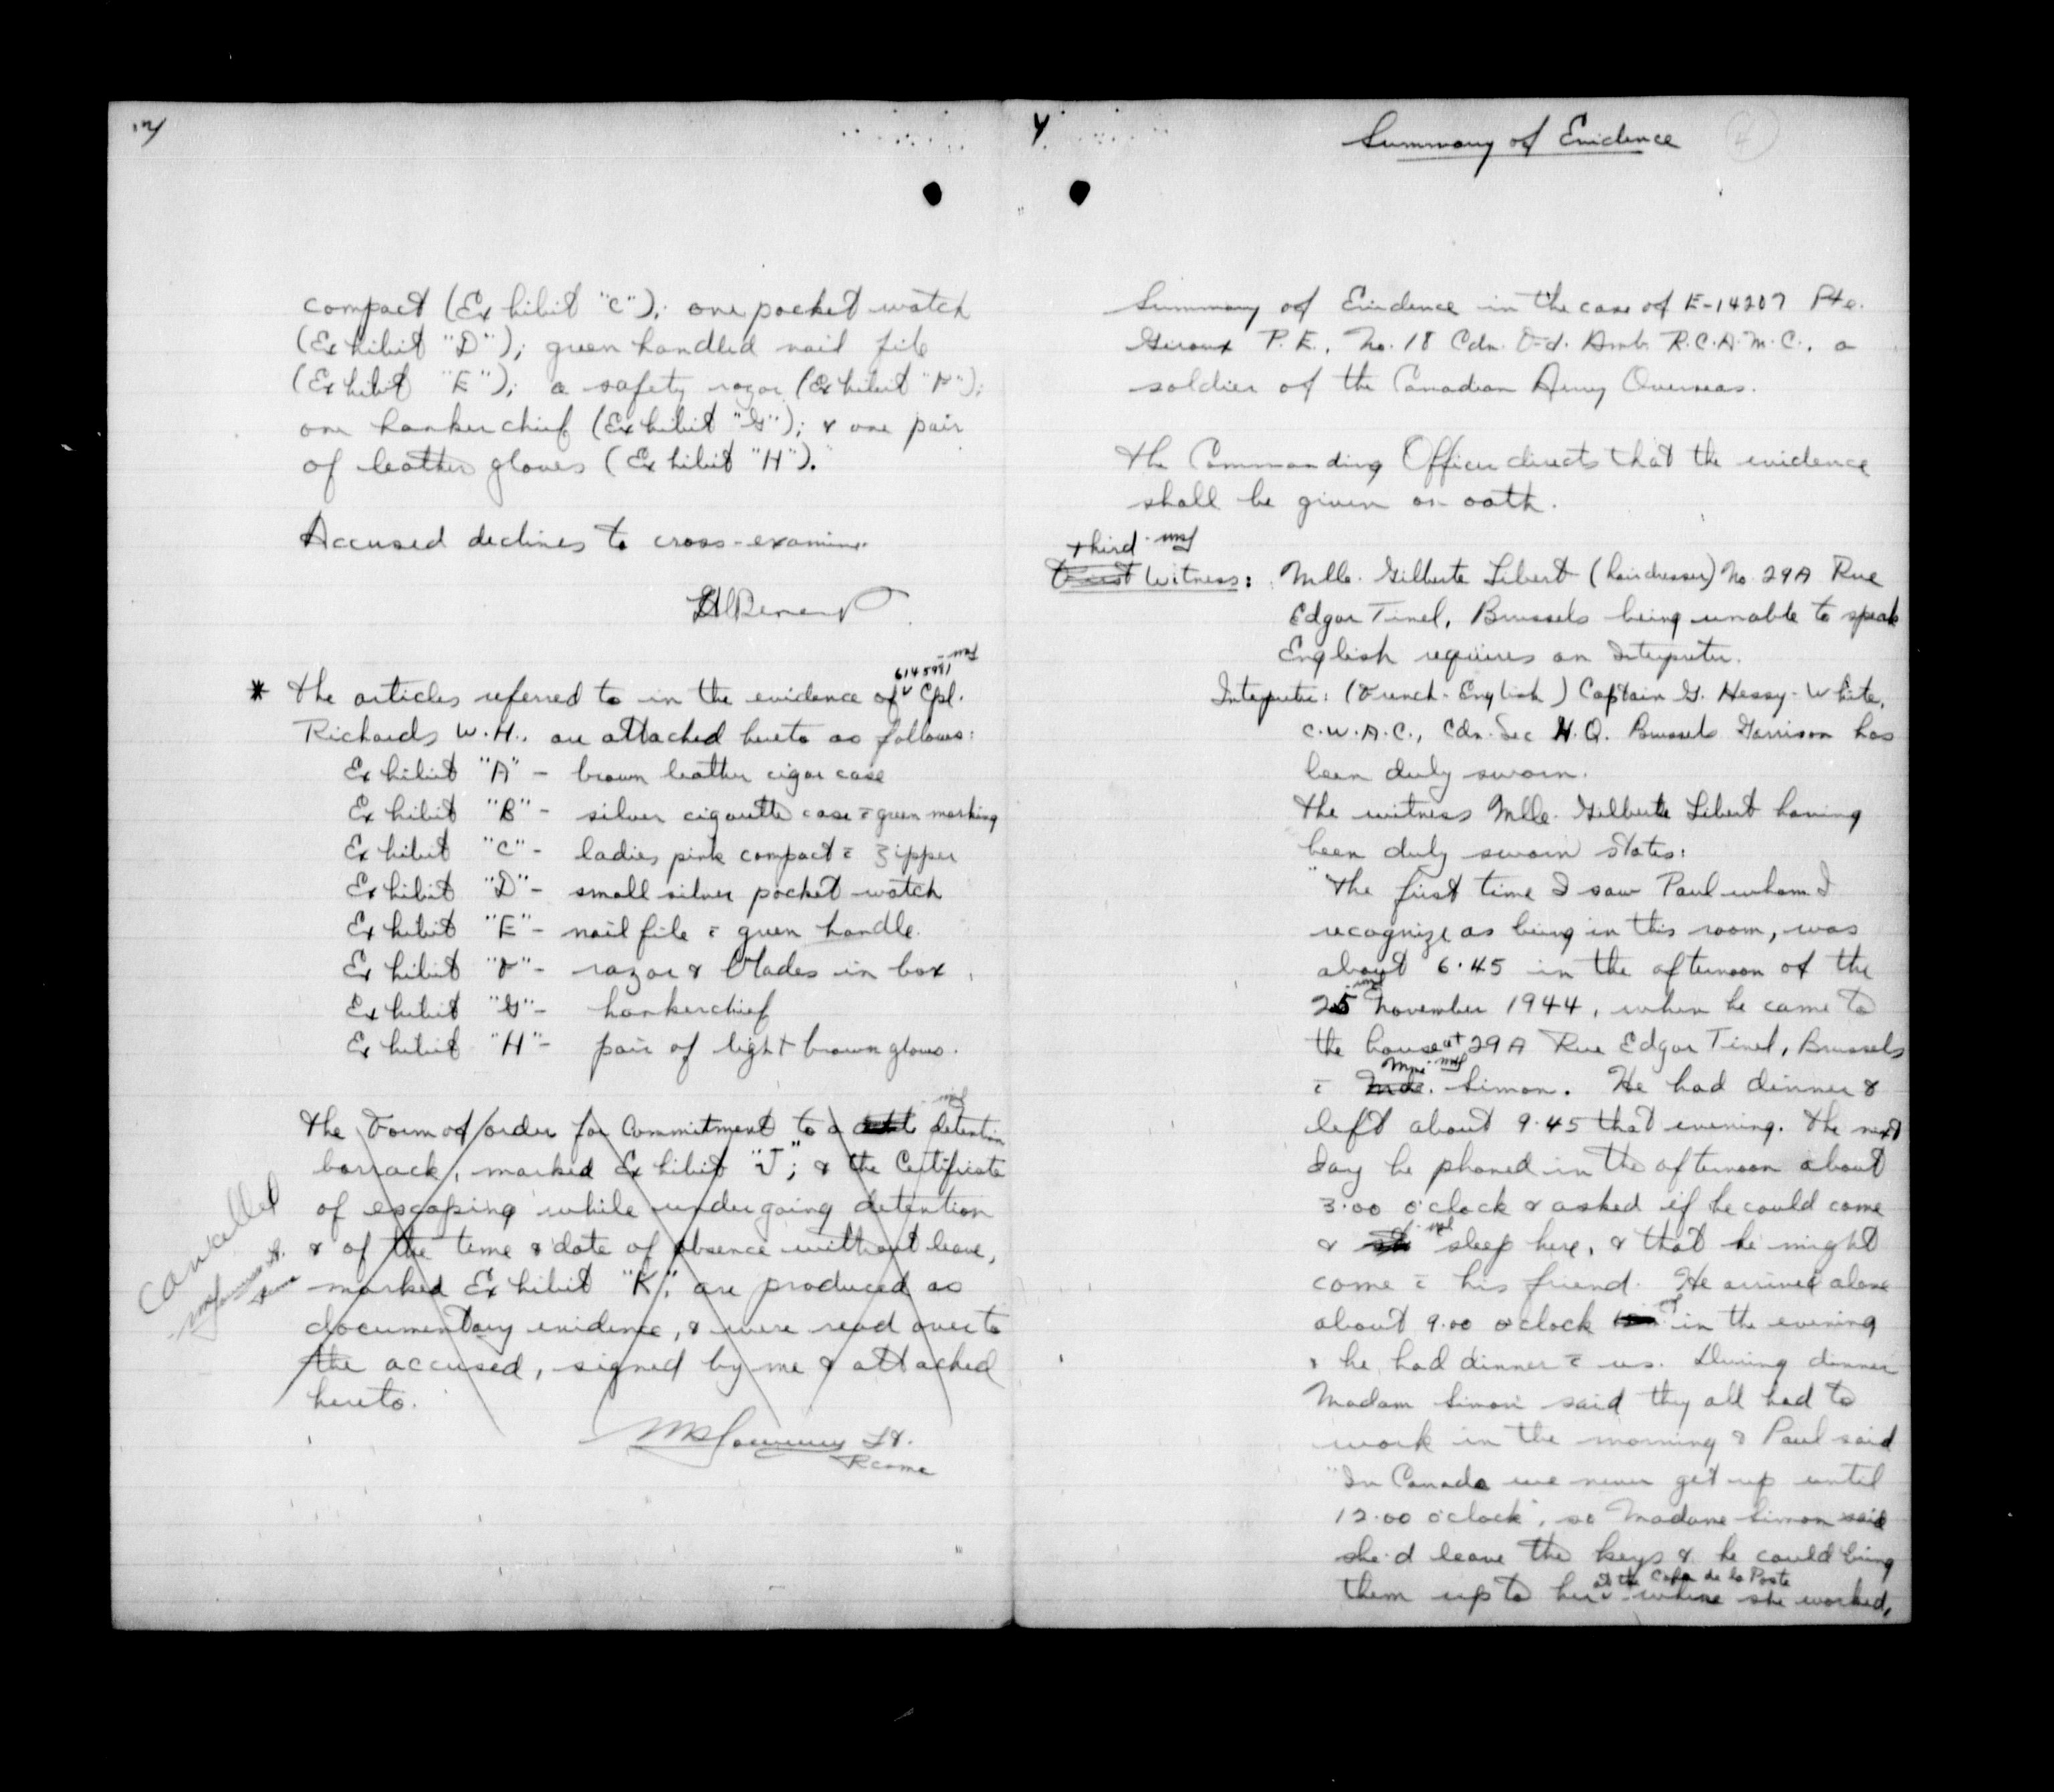 compact (Exhibit "C"); one pocket watch
(Exhibit "D"); green handled nail file
(Exhibit "E"); a safety razor (Exhibit "F");
one hankerchief (Exhibit "G"); & one pair
of leather gloves (Exhibit "H").
Accused declines to cross-examine.
* The articles referred to in the evidence of 6145981 Cpl.
Richards W.H., are attached hereto as follows:
Exhibit "A" - brown leather cigar case
Exhibit "B" - silver cigarette case c̄ green marking
Exhibit "C" - ladies pink compact c̄ zipper
Exhibit "D" - small silver pocket watch
Exhibit "E" - nail file c̄ green handle.
Exhibit "F" - razor & blades in box.
Exhibit "G" - hankerchief
Exhibit "H" - pair of light brown gloves.
The Form of order for Commitment to a detention
barrack, marked Exhibit "J"; & the Certificate
of escaping while undergoing detention
& of the time & date of absence without leave,
marked Exhibit "K", are produced as
documentary evidence, & were read over to
the accused, signed by me & attached
hereto.
Lt.
RCAMC
Cancelled
4.
Summary of Evidence
4
Summary of Evidence in the case of E-14207 Pte.
Giroux P.E., No. 18 Cdn. Fd. Amb. R.C.A.M.C., a
soldier of the Canadian Army Overseas.
The Commanding Officer directs that the evidence
shall be given on oath.
Third
First Witness: Mlle. Gilberte Libert (hairdresser) No. 29A Rue
Edgar Tinel, Brussels being unable to speak
English requires an Interpreter.
Interpreter: (French-English) Captain G. Hessy-White,
C.W.A.C., Cdn. Sec H.Q. Brussels Garrison has
been duly sworn.
The witness Mlle. Gilberte Libert having
been duly sworn states:
"The first time I saw Paul whom I
recognize as being in this room, was
about 6.45 in the afternoon of the
25 November 1944, when he came to
the house at 29A Rue Edgar Tinel, Brussels
c̄ Mme. Simon. He had dinner &
left about 9.45 that evening. The next
day he phoned in the afternoon about
3.00 o'clock & asked if he could come
& sleep here, & that he might
come c̄ his friend. He arrived alone
about 9.00 o'clock in the evening
& he had dinner c̄ us. During dinner
Madam Simon said they all had to
work in the morning & Paul said
"In Canada we never get up until
12.00 o'clock", so Madame Simon said
she'd leave the keys & he could bring
them up to her at the Cafe de la Poste where she worked,